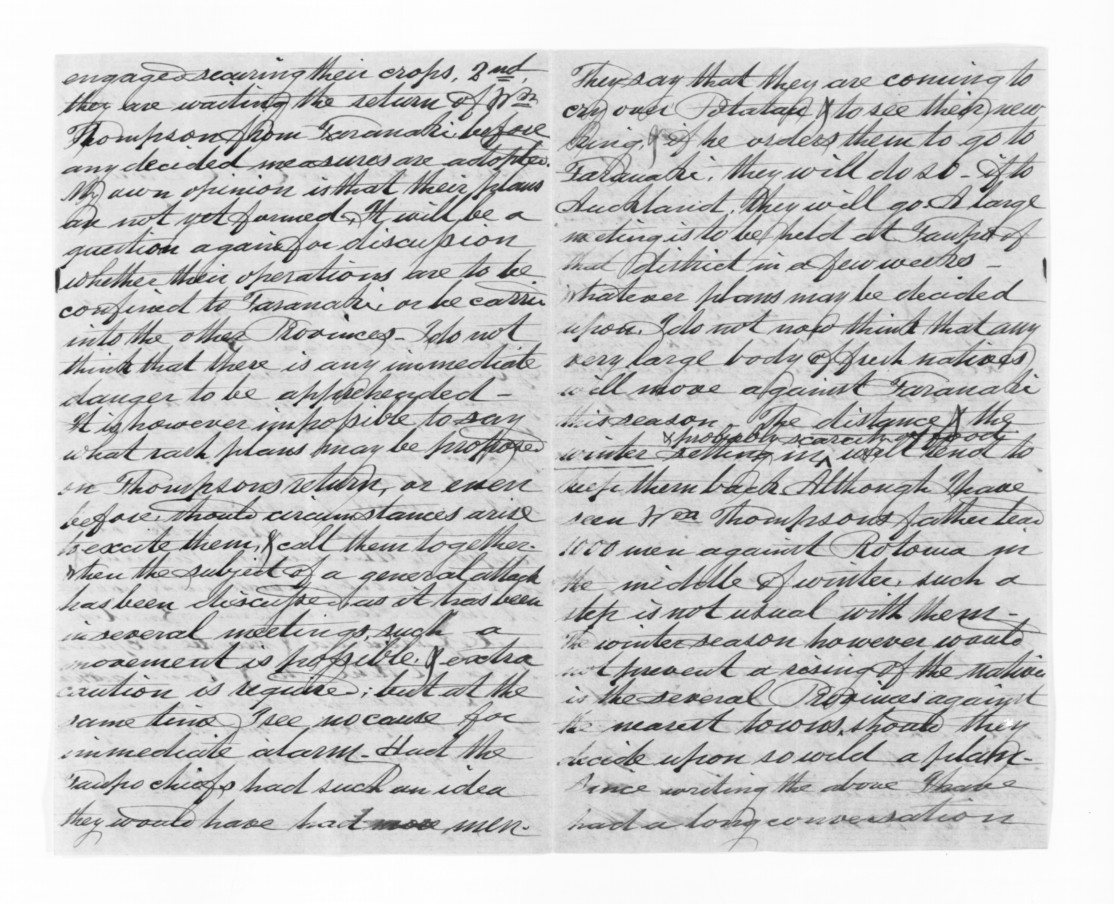 engaged securing their crops, 2nd,
they are waiting the return of Wm
Thompson from Taranaki before
any decided measures are adopted.
My own opinion is that their plans
are not yet formed, It will be a
question again for discussion
whether their operations are to be
confined to Taranaki or be carried
into the other Provinces - I do not
think that there is any immediate
danger to be apprehended -
It is however impossible to say
what rash plans may be proposed
on Thompsons return, or even
before, should circumstances arise
to excite them, & call them together.
When the subject of a general attack
has been discussed as it has been
in several meetings, such a
movement is possible, & extra
caution is required; but at the
same time I see no cause for
immediate alarm - Had the
Taupo chiefs had such an idea
they would have had more men.
They say that they are coming to
cry over Potatau & to see their new
King, if he orders them to go to
Taranaki, they will do so - if to
Auckland, they will go. A large
meeting is to be held at Taupo of
that District in a few weeks -
Whatever plans may be decided
upon, I do not now think that any
very large body of fresh natives
will move against Taranaki
this season. The distance & the
& probably scarcity of food
winter setting in ^ will tend to
keep them back. Although I have
seen Wm Thompsons father lead
1000 men against Rotorua in
the middle of winter, such a
step is not usual with them -
The winter season however would
not prevent a rising of the natives
in the several Provinces against
the nearest towns, should they
decide upon so wild a plan -
Since writing the above I have
had a long conversation